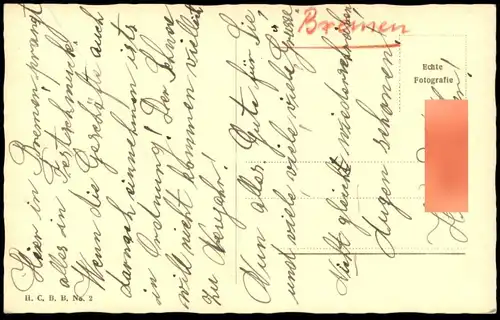 Bremen
Echte
Fotografie
Hier in Bremen prangt
alles in Festschmuck!
Wenn die Geschäfte auch
darnach einnehmen ists
in Ordnung! Der Schnee
will nicht kommen vielleicht
zu Neujahr!
Nun alles Gute für Sie,
und viele, viele, viele Grüsse
Nicht gleich wiederschreiben
Augen schonen!
H. C. B. B. No. 2